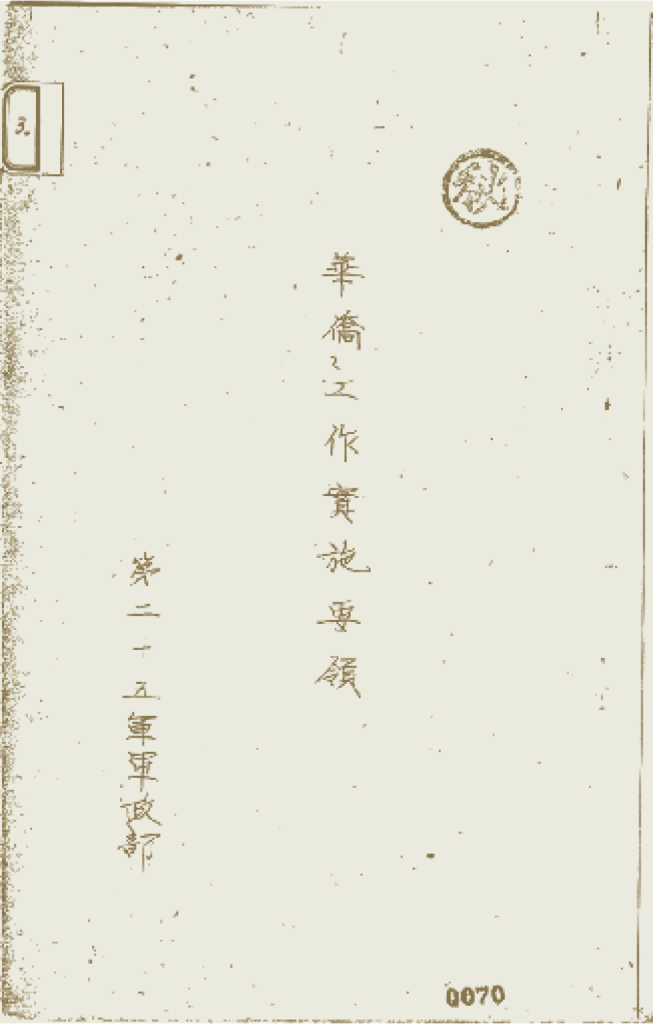 3.
秘
華僑工作實施要領
第二十五軍軍政部
0070